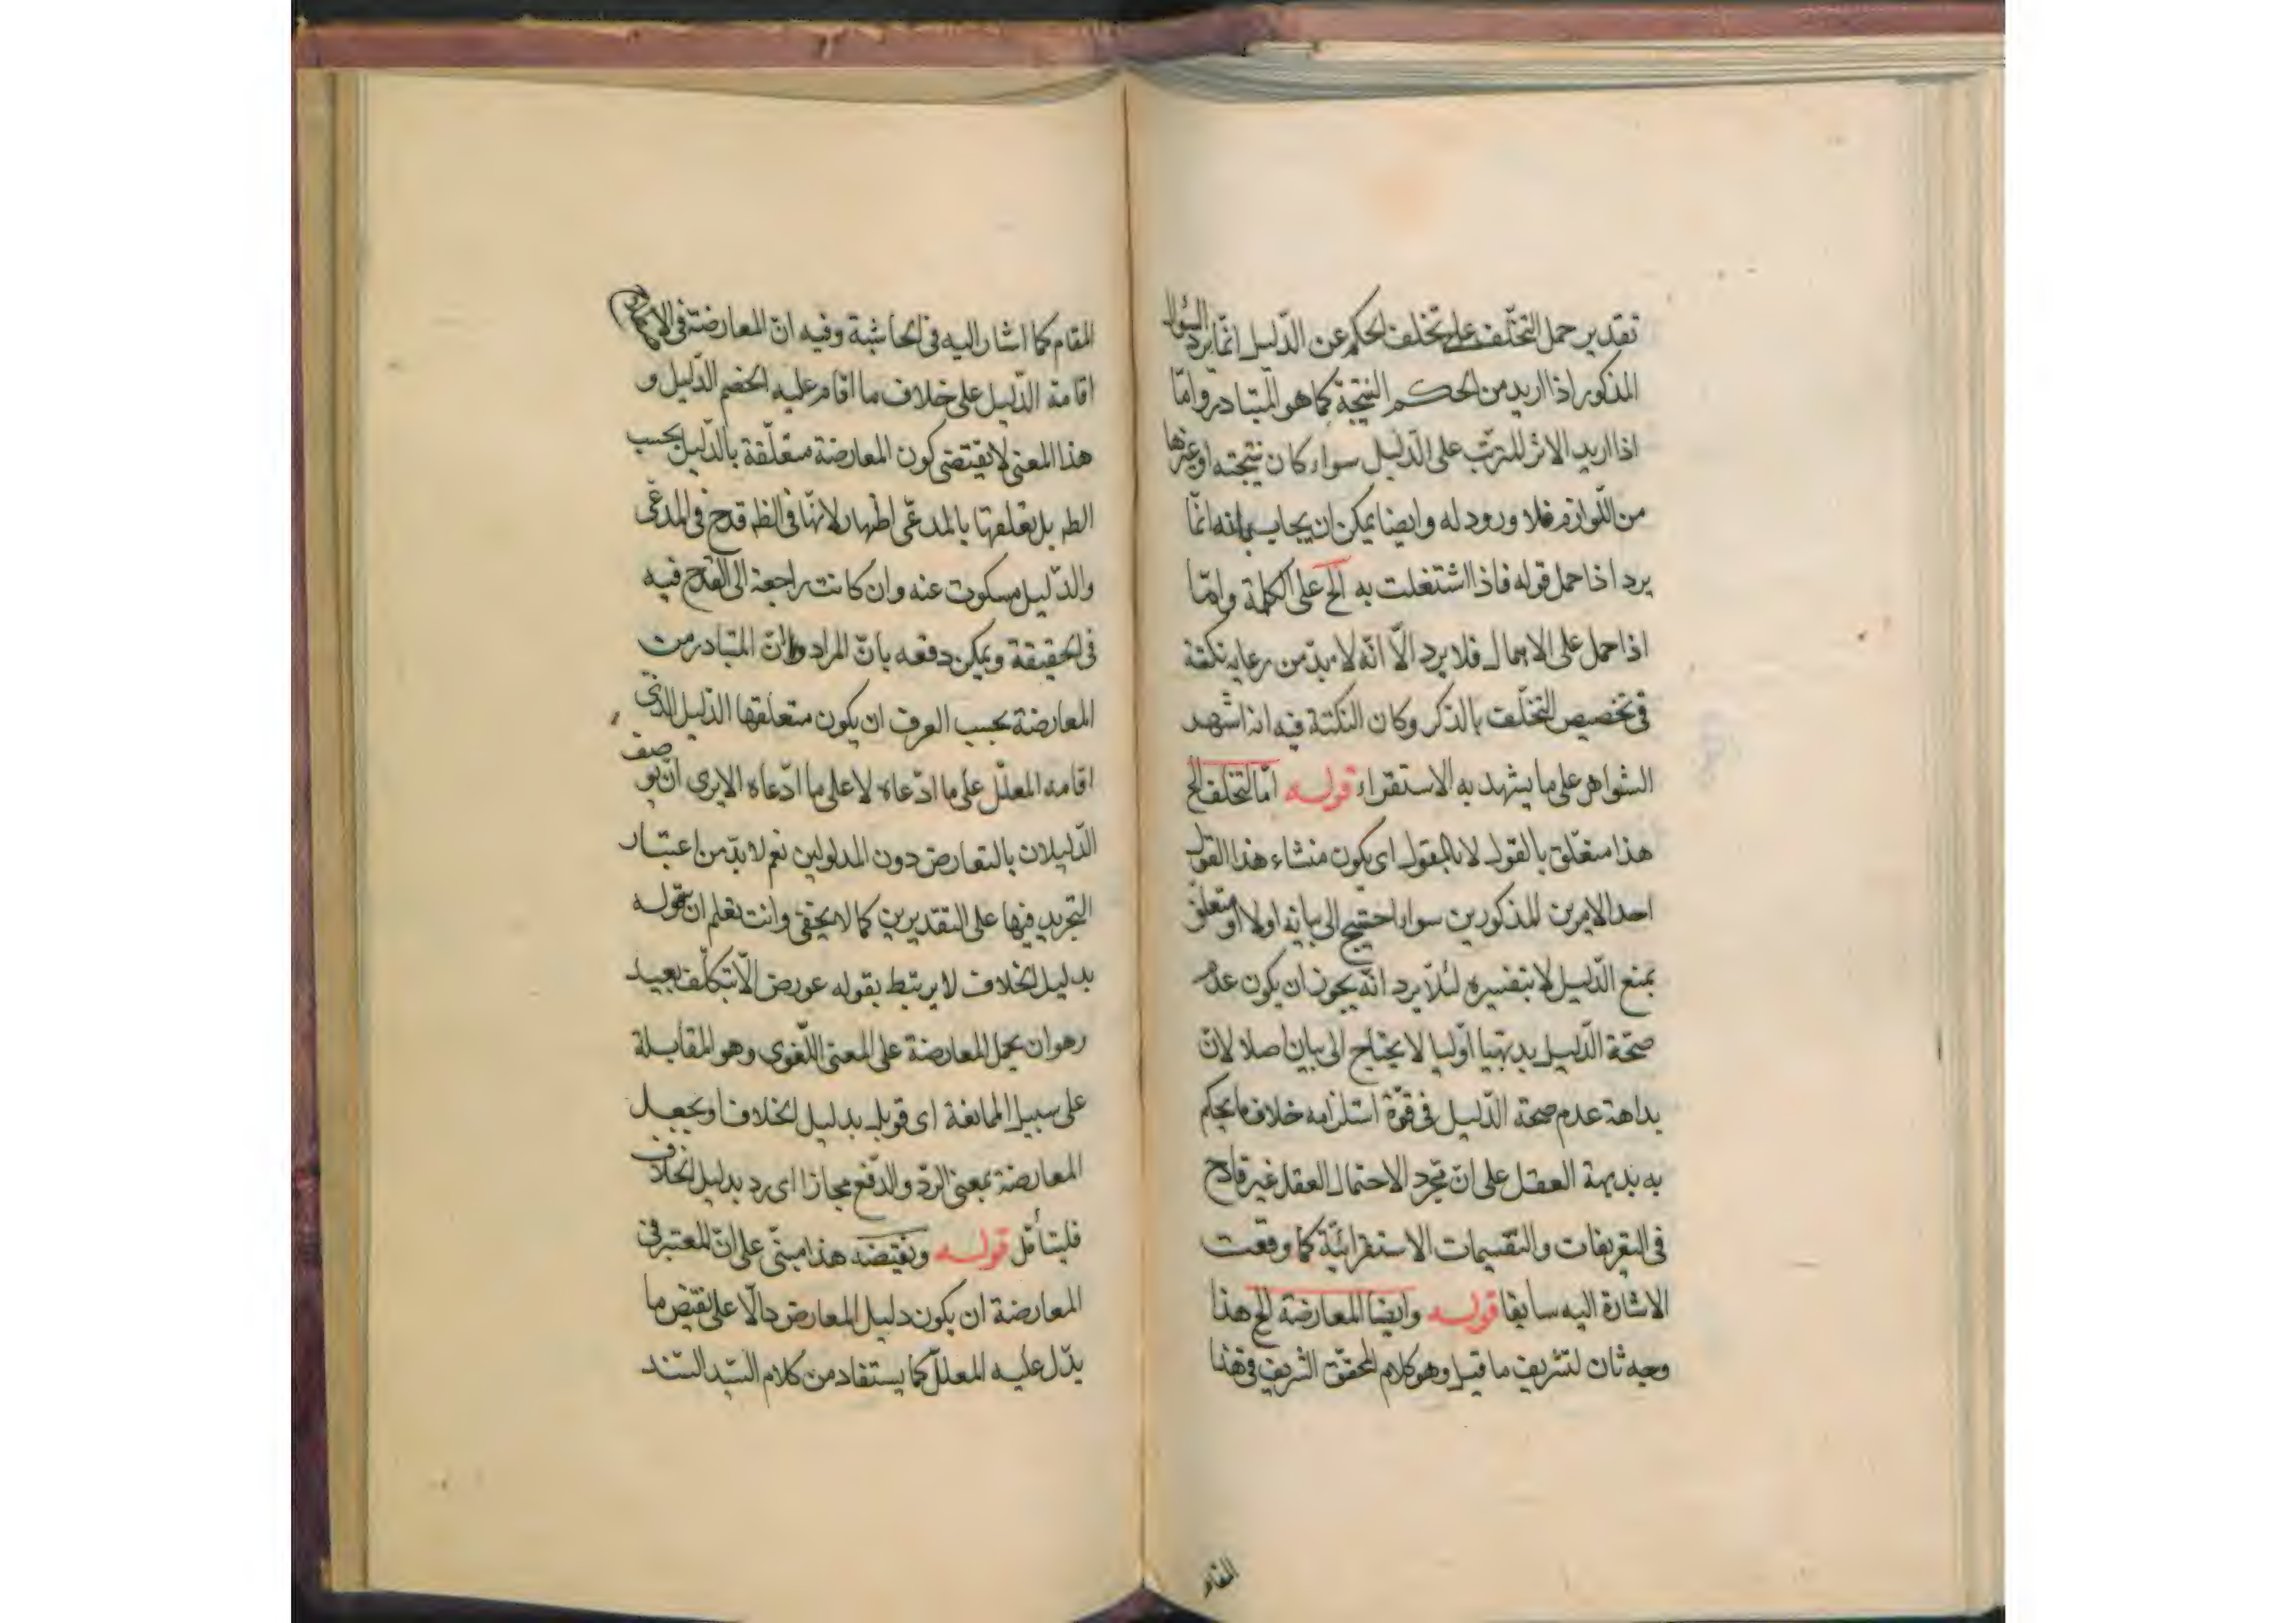 تقدير حمل التخلّف على تخلف الحكم عن الدّليل انّما يرد السؤال
المذكور اذا اريد من الحكم النتيجة كما هو المتبادر وامّا
اذا اريد الاثر المترتّب على الدّليل سواء كان نتيجته او غيرها
من اللّوازم فلا ورود له وايضا يمكن ان يجاب بانه انّما
يرد اذا حمل قوله فاذا اشتغلت به الخ على الكلية وامّا
اذا حمل على الاهمال فلا يرد الّا انّه لا بدّ من رعاية نكتة
فى تخصيص التخلّف بالذكر وكان النكتة فيه انه اشهد
الشواهر على ما يشهد به الاستقراء قوله امّا التخلف الخ
هذا متعلّق بالقول لا بالمقول اى يكون منشاء هذا القول
احد الامرين المذكورين سواء احتيج الى بيانه اولا او متعلّق
بمنع الدّليل لا بتفسيره لئلّا يرد انّه يجوز ان يكون عدم
صحّة الدّليل بديهيّا اوّليا لا يحتاج الى بيان اصلا لانّ
بداهة عدم صحة الدّليل فى قوّة استلزامه خلاف ما يحكم
به بديهة العقل على انّ مجرّد الاحتمال العقل غير قادح
فى التعريفات والتقسيمات الاستقرائيّة كما وقعت
الاشارة اليه سابقا قوله وايضا المعارضة الخ هذا
وجه ثان لتشريف ما قيل وهو كلام المحقّق الشريف فى هذا
المقام
المقام كما اشار اليه فى الحاشية وفيه انّ المعارضة فى
اقامة الدّليل على خلاف ما اقام عليه الخصم الدّليل و
هذا المعنى لا يقتضى كون المعارضة متعلّقة بالدّليل بحسب
الظ بل تعلقها بالمدعّى اظهار لانّها فى الظ قدح فى المدعّى
والدّليل مسكوت عنه وان كانت راجعة الى القدح فيه
فى الحقيقة ويمكن دفعه بانّ المراد انّ المتبادر من
المعارضة بحسب العرف ان يكون متعلّقها الدّليل الذى
اقامه المعلّل على ما ادّعاه لا على ما ادّعاه الا يرى ان يوصف
الدّليلان بالتعارض دون المدلولين نعم لا بدّ من اعتبار
التجريد فيها على التقديرين كما لا يخفى وانت تعلم ان قوله
بدليل الخلاف لا يرتبط بقوله عورض الّا بتكلّف بعيد
وهو ان يحمل المعارضة على المعنى اللّغوى وهو المقابلة
على سبيل الممانعة اى قوبل بدليل الخلاف او يجعل
المعارضة بمعنى الردّ والدّفع مجازا اى رد بدليل الخلاف
فليتأمّل قوله ونقيضه هذا مبنىّ على انّ المعتبر فى
المعارضة ان يكون دليل المعارض دالّا على نقيض ما
يدّل عليه المعلّل كما يستفاد من كلام السّيد السّند